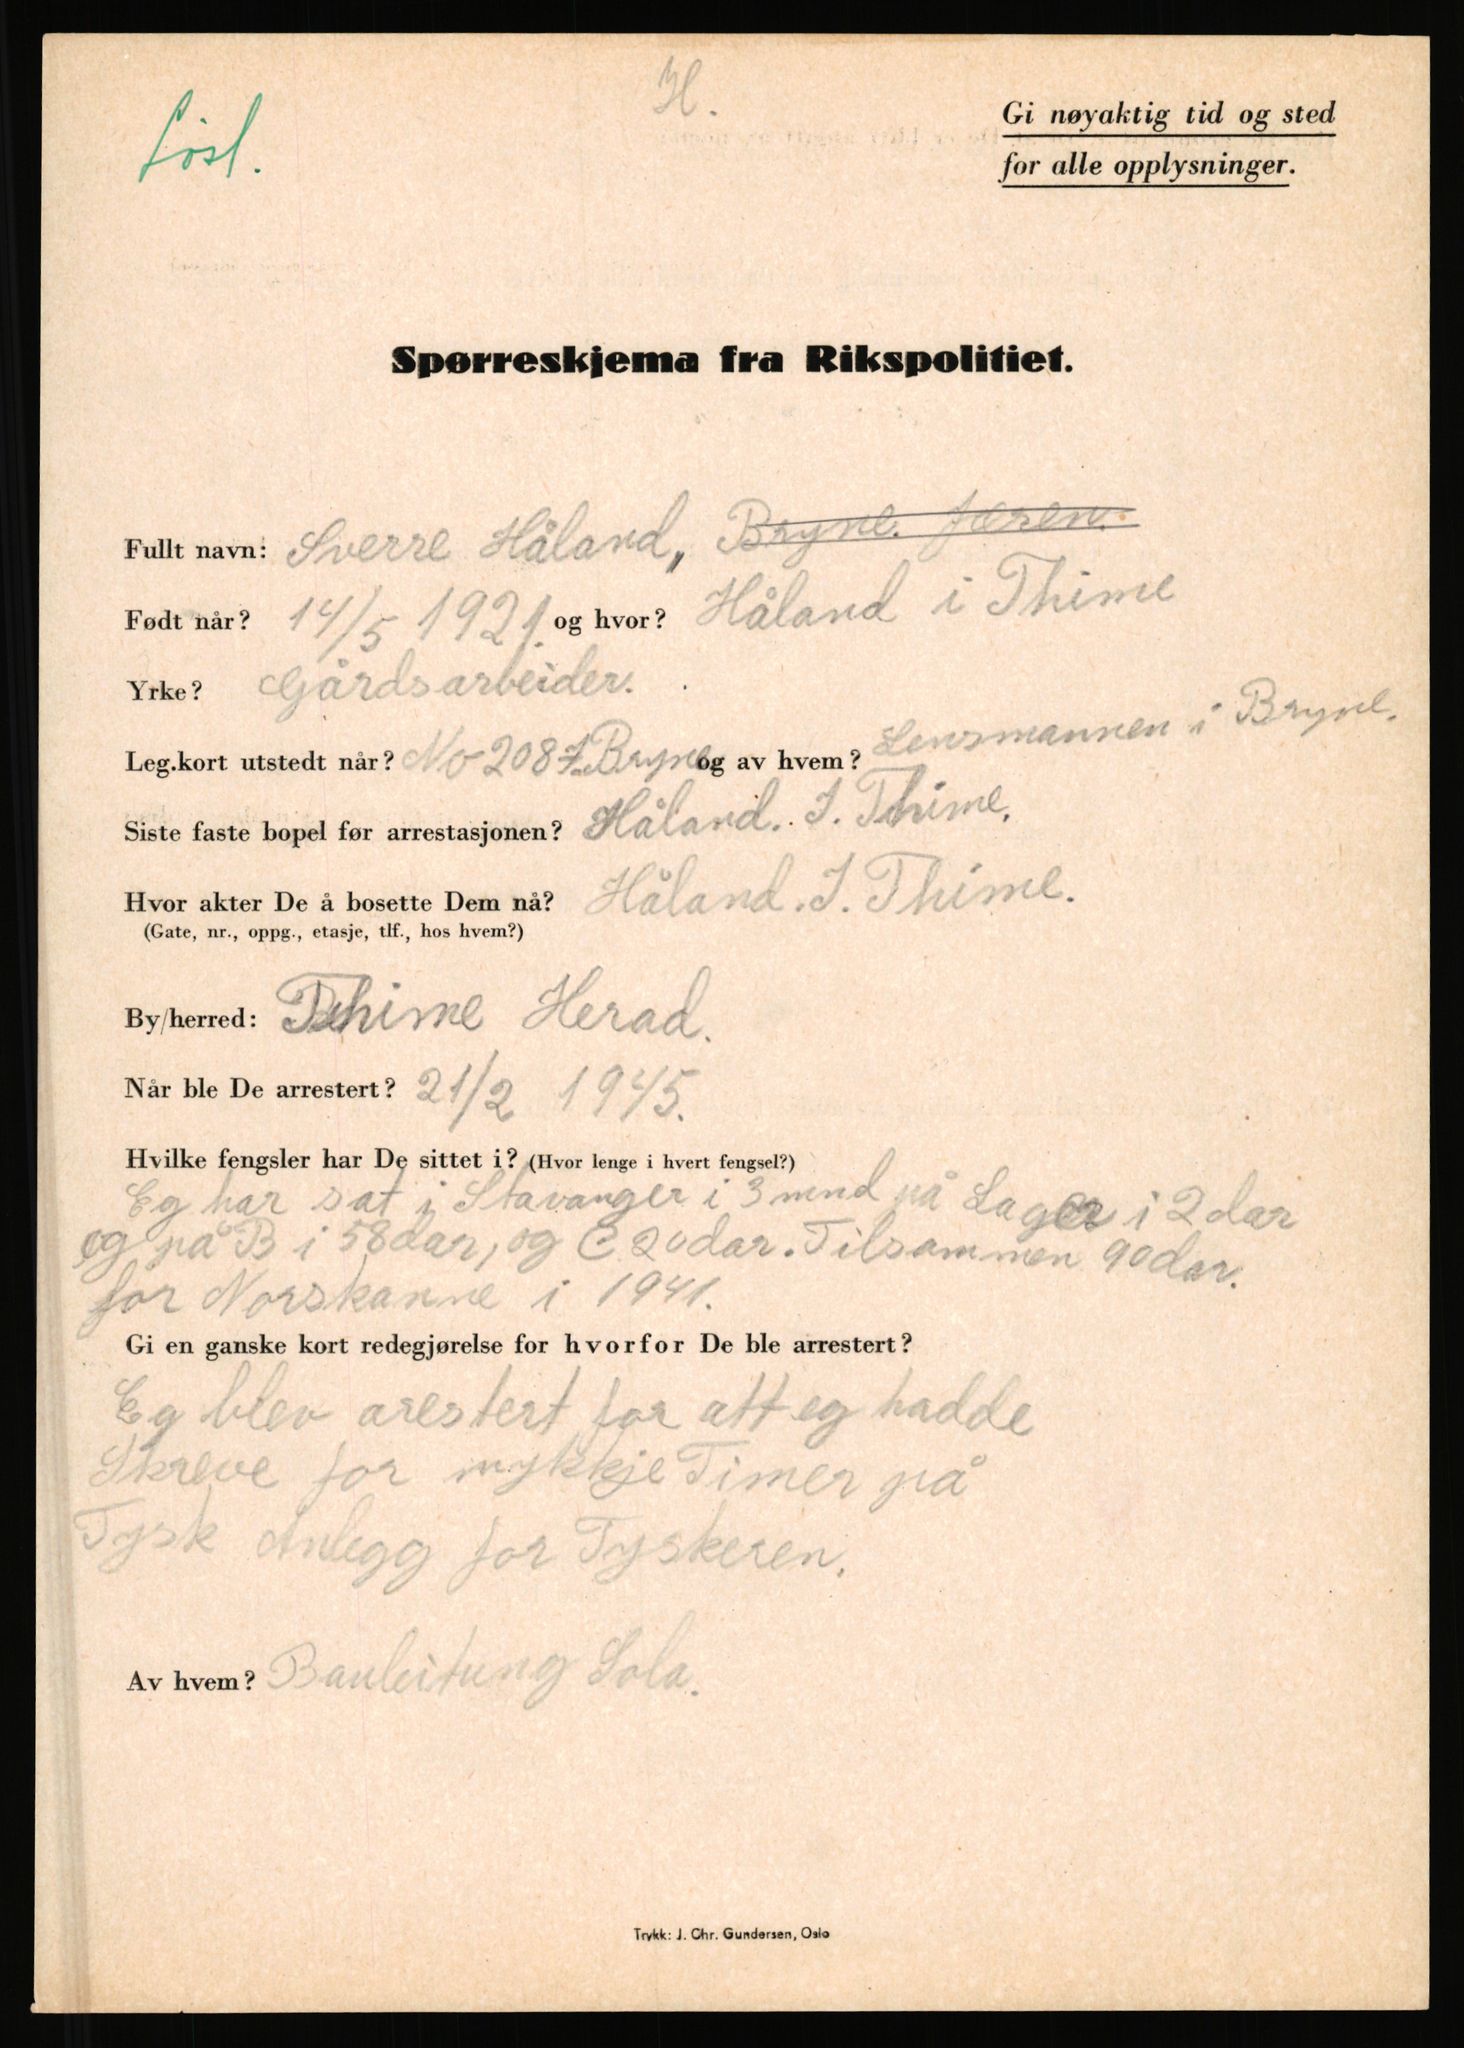 H.
Løsl.
Gi nøyaktig tid og sted
for alle opplysninger.
Spørreskjema fra Rikspolitiet.
Fullt navn: Sverre Håland, Bryne. Jæren.
Født når? 14/5 1921. og hvor? Håland i Thime
Yrke? Gårdsarbeider.
Leg.kort utstedt når? No 2087. Bryne og av hvem? Lensmannen i Bryne.
Siste faste bopel før arrestasjonen? Håland. I. Thime.
Hvor akter De å bosette Dem nå? Håland. I. Thime.
(Gate, nr., oppg., etasje, tlf., hos hvem?)
By/herred: Thime Herad.
Når ble De arrestert? 21/2 1945.
Hvilke fengsler har De sittet i? (Hvor lenge i hvert fengsel?)
Eg har sat i Stavanger i 3 mnd på Lager i 2 dar
og på B i 58 dar, og C 20 dar. Tilsammen 90 dar.
for Norskanne i 1941.
Gi en ganske kort redegjørelse for hvorfor De ble arrestert?
Eg blev arestert for att eg hadde
Skreve for mykkje Timer på
Tysk Anlegg for Tyskeren.
Av hvem? Bauleitung Sola.
Trykk: J. Chr. Gundersen, Oslo